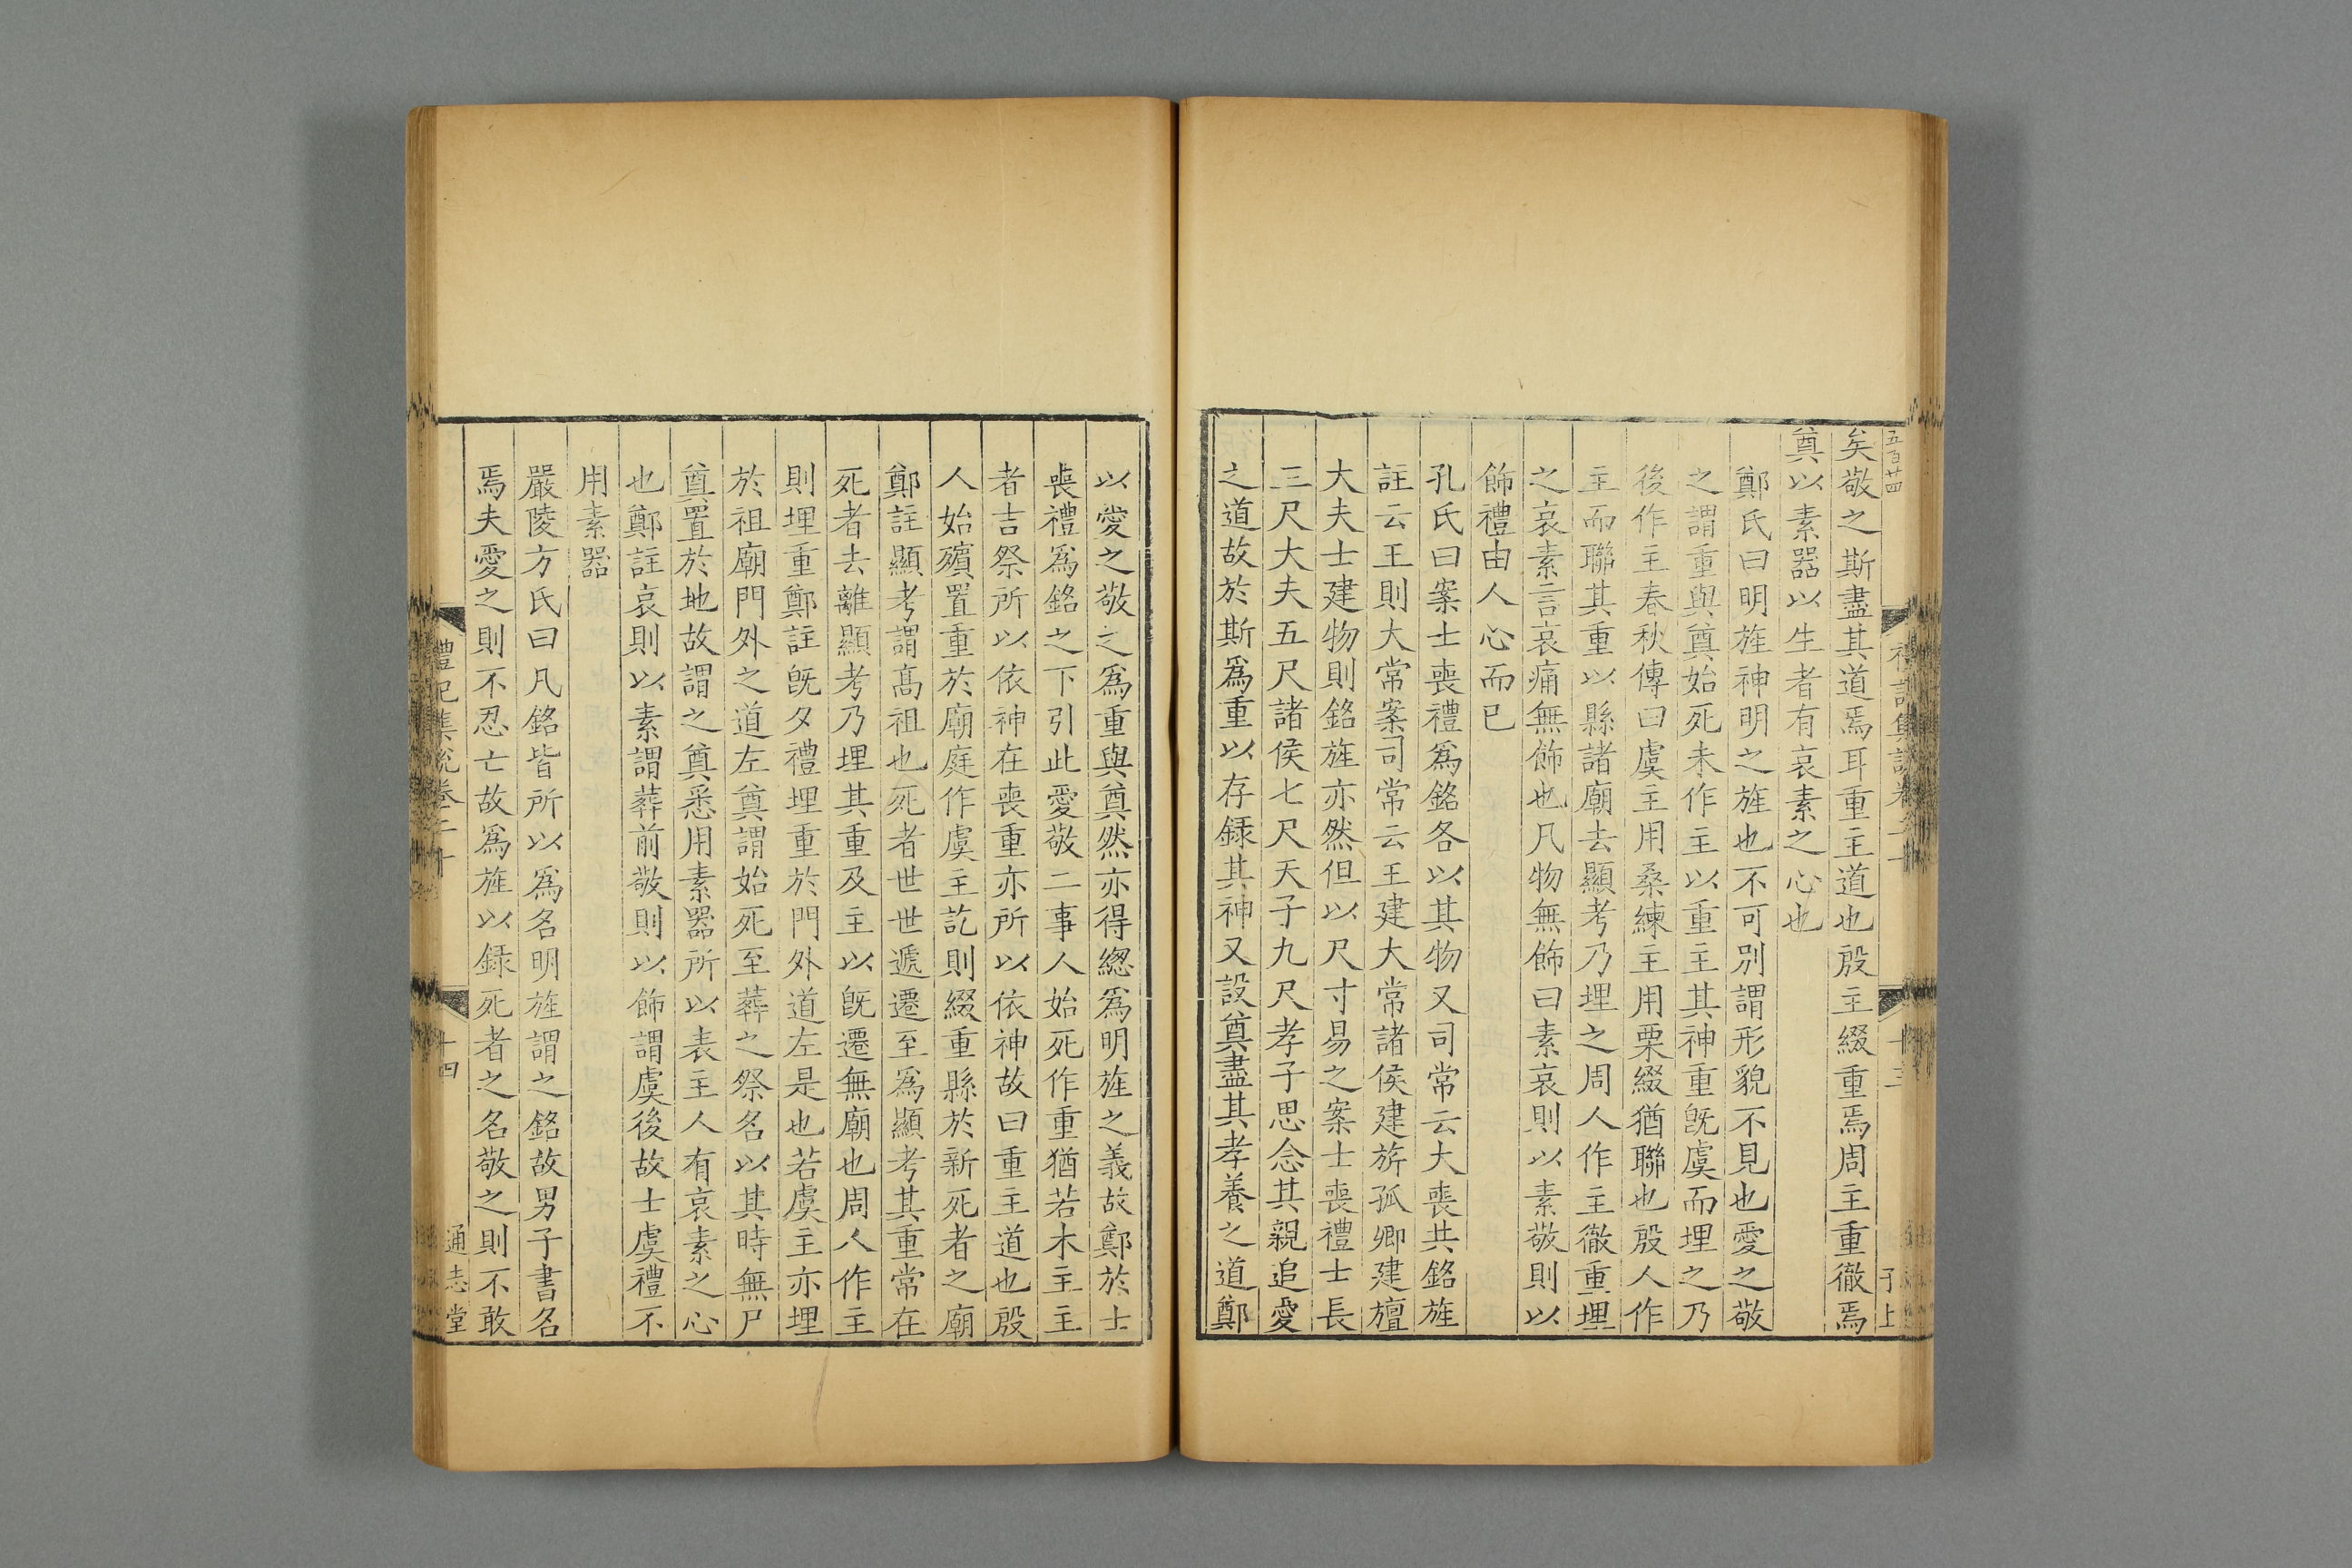 五百廿四
矣敬之斯盡其道焉耳重主道也殷主綴重焉周主重徹焉
奠以素器以生者有哀素之心也
鄭氏曰明旌神明之旌也不可別謂形貌不見也愛之敬
之謂重與奠始死未作主以重主其神重旣虞而埋之乃
後作主春秋傳曰虞主用桑練主用栗綴猶聯也殷人作
主而聯其重以縣諸廟去顯考乃埋之周人作主徹重埋
之哀素言哀痛無飾也凡物無飾曰素哀則以素敬則以
飾禮由人心而已
孔氏曰案士喪禮爲銘各以其物又司常云大喪共銘旌
註云王則大常案司常云王建大常諸侯建旂孤卿建旜
大夫士建物則銘旌亦然但以尺寸易之案士喪禮士長
三尺大夫五尺諸侯七尺天子九尺孝子思念其親追愛
之道故於斯爲重以存録其神又設奠盡其孝養之道鄭
以愛之敬之爲重與奠然亦得緫爲明旌之義故鄭於士
喪禮爲銘之下引此愛敬二事人始死作重猶若木主主
者吉祭所以依神在喪重亦所以依神故曰重主道也殷
人始殯置重於廟庭作虞主訖則綴重縣於新死者之廟
鄭註顯考謂髙祖也死者世世遞遷至爲顯考其重常在
死者去離顯考乃埋其重及主以旣遷無廟也周人作主
則埋重鄭註旣夕禮埋重於門外道左是也若虞主亦埋
於祖廟門外之道左奠謂始死至葬之祭名以其時無尸
奠置於地故謂之奠悉用素器所以表主人有哀素之心
也鄭註哀則以素謂葬前敬則以飾謂虞後故士虞禮不
用素器
嚴陵方氏曰凡銘皆所以爲名明旌謂之銘故男子書名
焉夫愛之則不忍亡故爲旌以録死者之名敬之則不敢
禮記集說卷二十
十四
通志堂